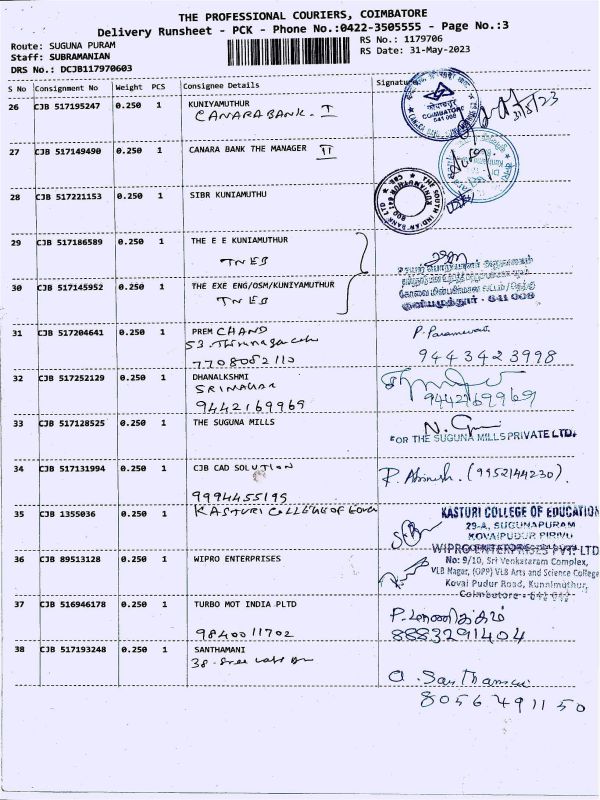 THE PROFESSIONAL COURIERS, COIMBATORE
Delivery Runsheet - PCK - Phone No.:0422-3505555 - Page No.:3
Route: SUGUNA PURAM
RS No.: 1179706
Staff: SUBRAMANIAN
RS Date: 31-May-2023
DRS No.: DCJB117970603
S No Consignment No Weight PCS Consignee Details Signature
26 CJB 517195247 0.250 1 KUNIYAMUTHUR
CANARA BANK. I
COIMBATORE
641 008
31/5/23
27 CJB 517149490 0.250 1 CANARA BANK THE MANAGER II
28 CJB 517221153 0.250 1 SIBR KUNIAMUTHU
THE SOUTH INDIAN BANK LTD
29 CJB 517186589 0.250 1 THE E E KUNIAMUTHUR
TNEB
30 CJB 517145952 0.250 1 THE EXE ENG/OSM/KUNIYAMUTHUR
TNEB
குனியமுத்தூர் - 641 008
31 CJB 517204641 0.250 1 PREM CHAND
53,
7708052110
9443423998
32 CJB 517252129 0.250 1 DHANALKSHMI
SRINAGAR
9442169969
9442169969
33 CJB 517128525 0.250 1 THE SUGUNA MILLS
FOR THE SUGUNA MILLS PRIVATE LTD.
34 CJB 517131994 0.250 1 CJB CAD SOLUTION
9994455195
R. Abinesh. (9952144230).
35 CJB 1355036 0.250 1 KASTURI COLLEGE OF
KASTURI COLLEGE OF EDUCATION
29-A, SUGUNAPURAM
KOVAIPUDUR PIRIVU
36 CJB 89513128 0.250 1 WIPRO ENTERPRISES
WIPRO ENTERPRISES PVT. LTD
No: 9/10, Sri Venkataram Complex,
VLB Nagar, (OPP) VLB Arts and Science College
Kovai Pudur Road, Kuniamuthur,
Coimbatore - 641 042
37 CJB 516946178 0.250 1 TURBO MOT INDIA PLTD
9840011702
P. மாணிக்கம்
8883291404
38 CJB 517193248 0.250 1 SANTHAMANI
38-
a. Santhamani
8056491150